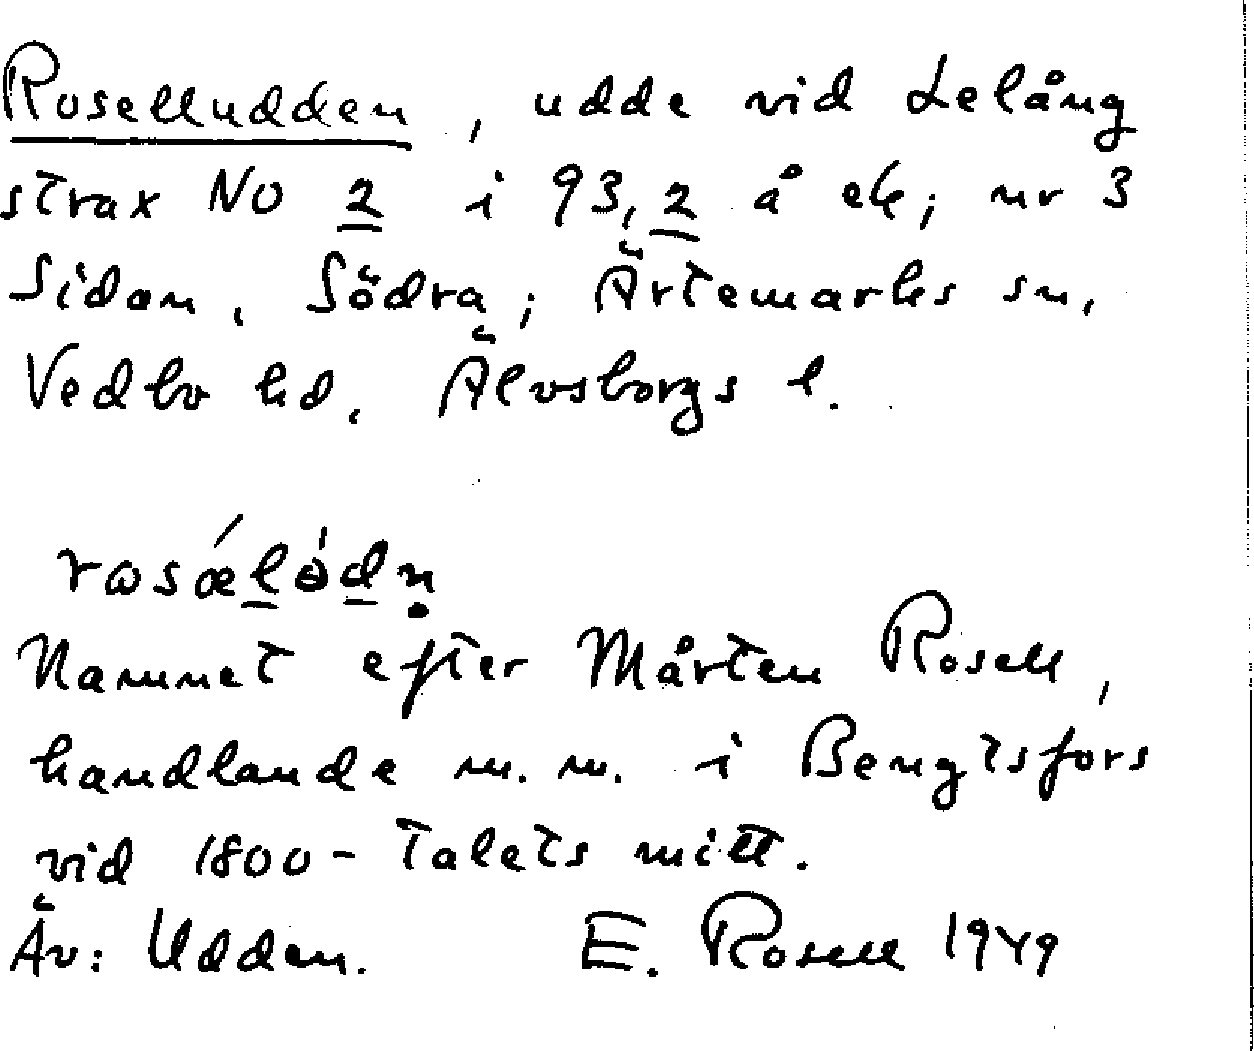 Roselludden, udde vid Lelång
strax NO 2 i 93,2 å ek; nr 3
Sidan, Södra; Ärtemarks sn,
Vedbo hd, Älvsborgs l.
Namnet efter Mårten Rosell,
handlande m.m. i Bengtsfors
vid 1800-talets mitt.
Äv: Udden. E. Rosell 1949